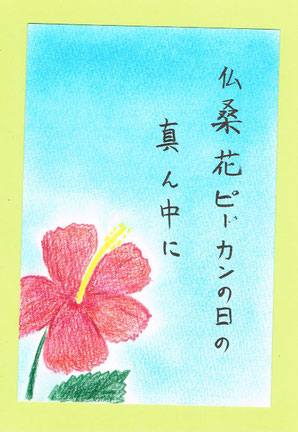 仏桑花ピーカンの日の
真ん中に